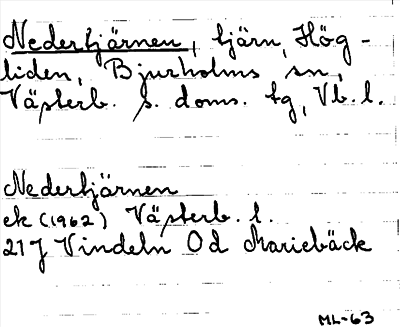 Nedertjärnen, tjärn, Hög-
liden, Bjurholms sn,
Västerb. s. doms. tg, Vb. l.
Nedertjärnen
ek (1962) Västerb. l.
21 J Vindeln Od Mariebäck
ML-63